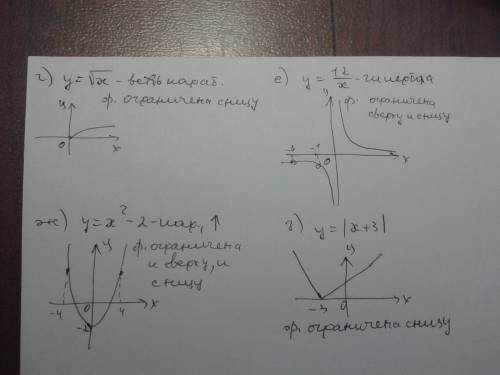 г) y = √x - ветвь параб.
ф. ограничена снизу
y
0
x
е) y = 12/x - гипербола
ф. ограничена
сверху и снизу
y
-3
-1
0
x
ж) y = x² - 2 - пар, ↑
ф. ограничена
и сверху, и
снизу
y
-4
0
4
x
-2
з) y = |x+3|
y
-3
0
x
ф. ограничена снизу